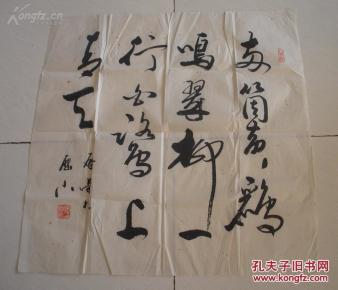 两箇黄鹂
鸣翠柳一
行白鹭上
青天
孔夫子旧书网
www.kongfz.com
Kongfz.cn